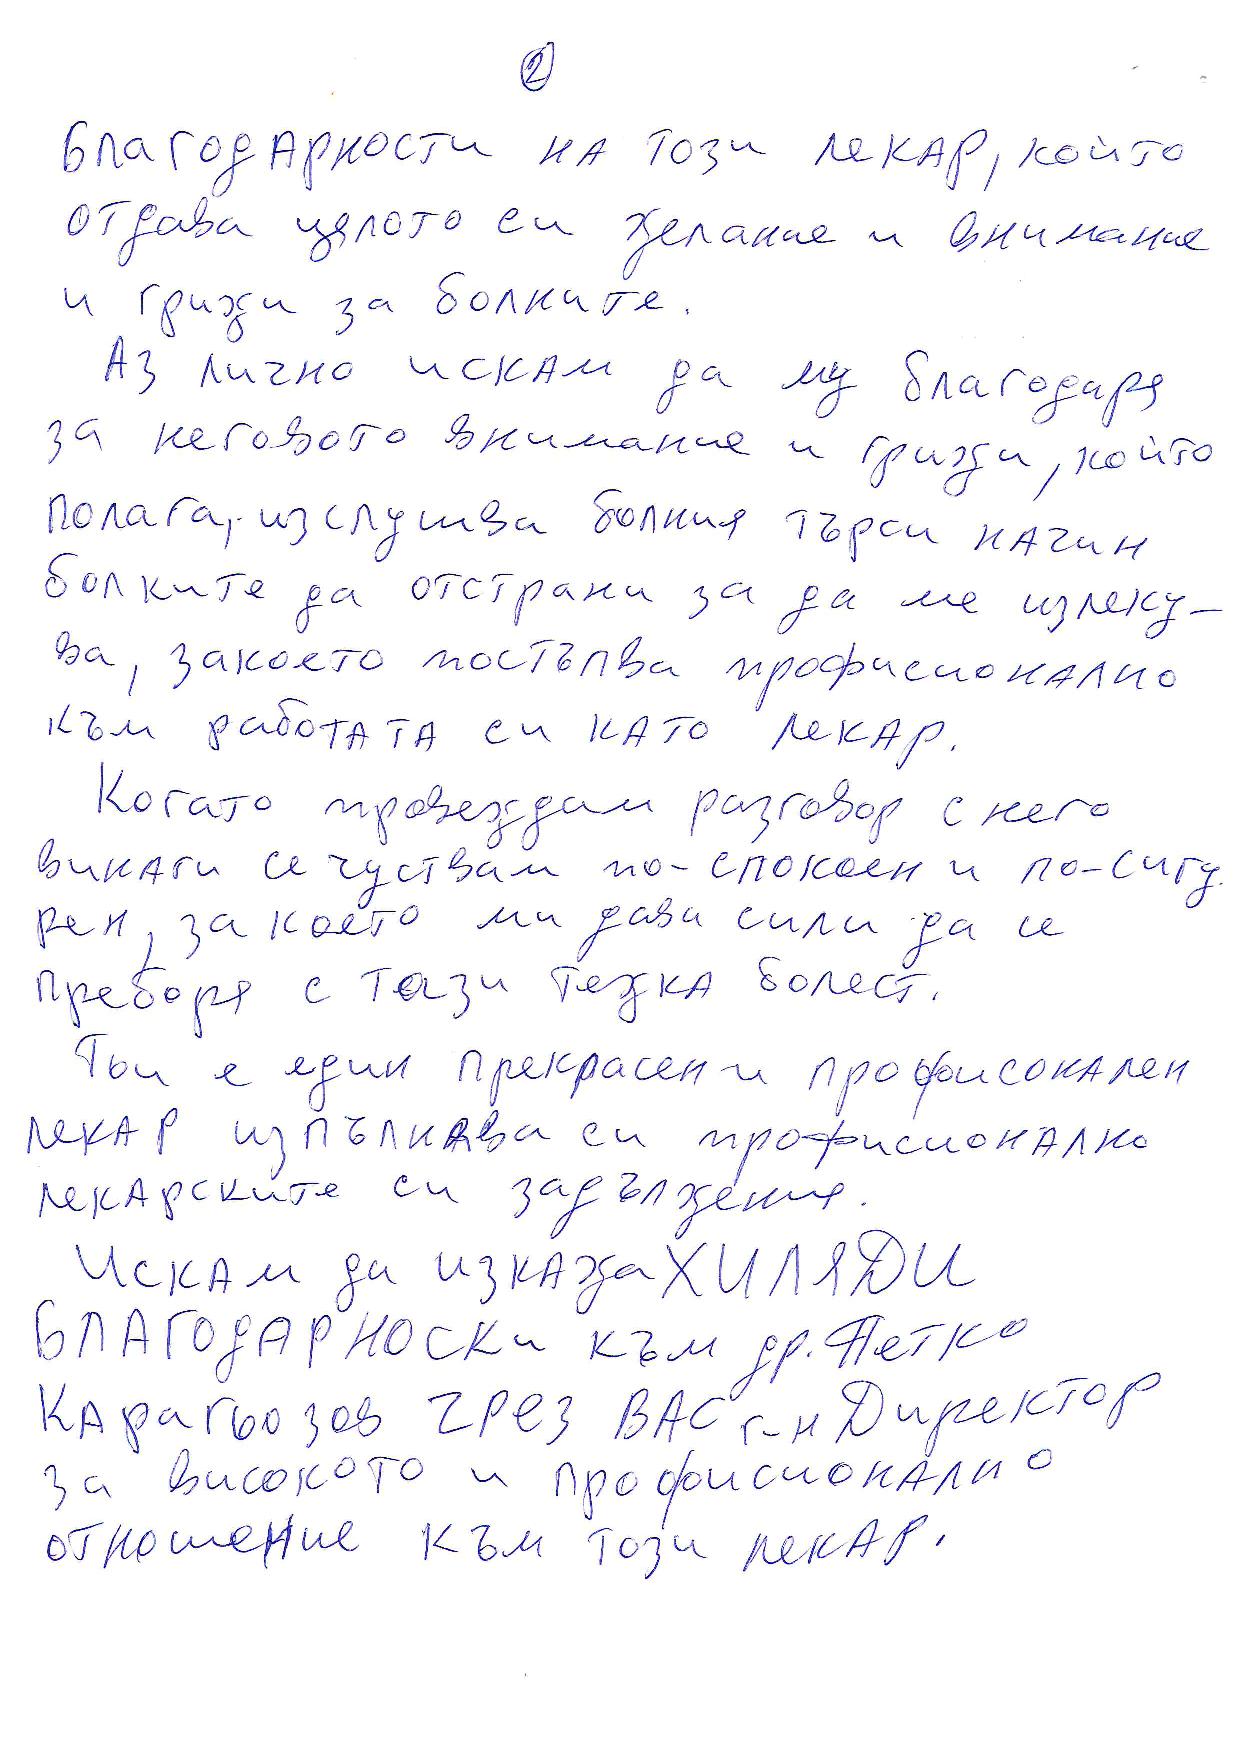 2
Благодарности на този лекар, който
отдава цялото си желание и внимание
и грижи за болките.
Аз лично искам да му благодаря
за неговото внимание и грижи, който
полага, изслушва болния търси начин
болките да отстрани за да ме излеку-
ва, закоето постъпва профисионално
към работата си като лекар.
Когато провеждам разговор с него
винаги се чуствам по-спокоен и по-сигу
рен, за което ми дава сили да се
преборя с тази тежка болест.
Той е един прекрасен и профисонален
лекар изпълнява си профисионално
лекарските си задължения.
Искам да изкажа ХИЛЯДИ
БЛАГОДАРНОСКИ към др. Петко
Карагьозов чрез ВАС г-н Директор
за високото и профисионално
отношение към този лекар.